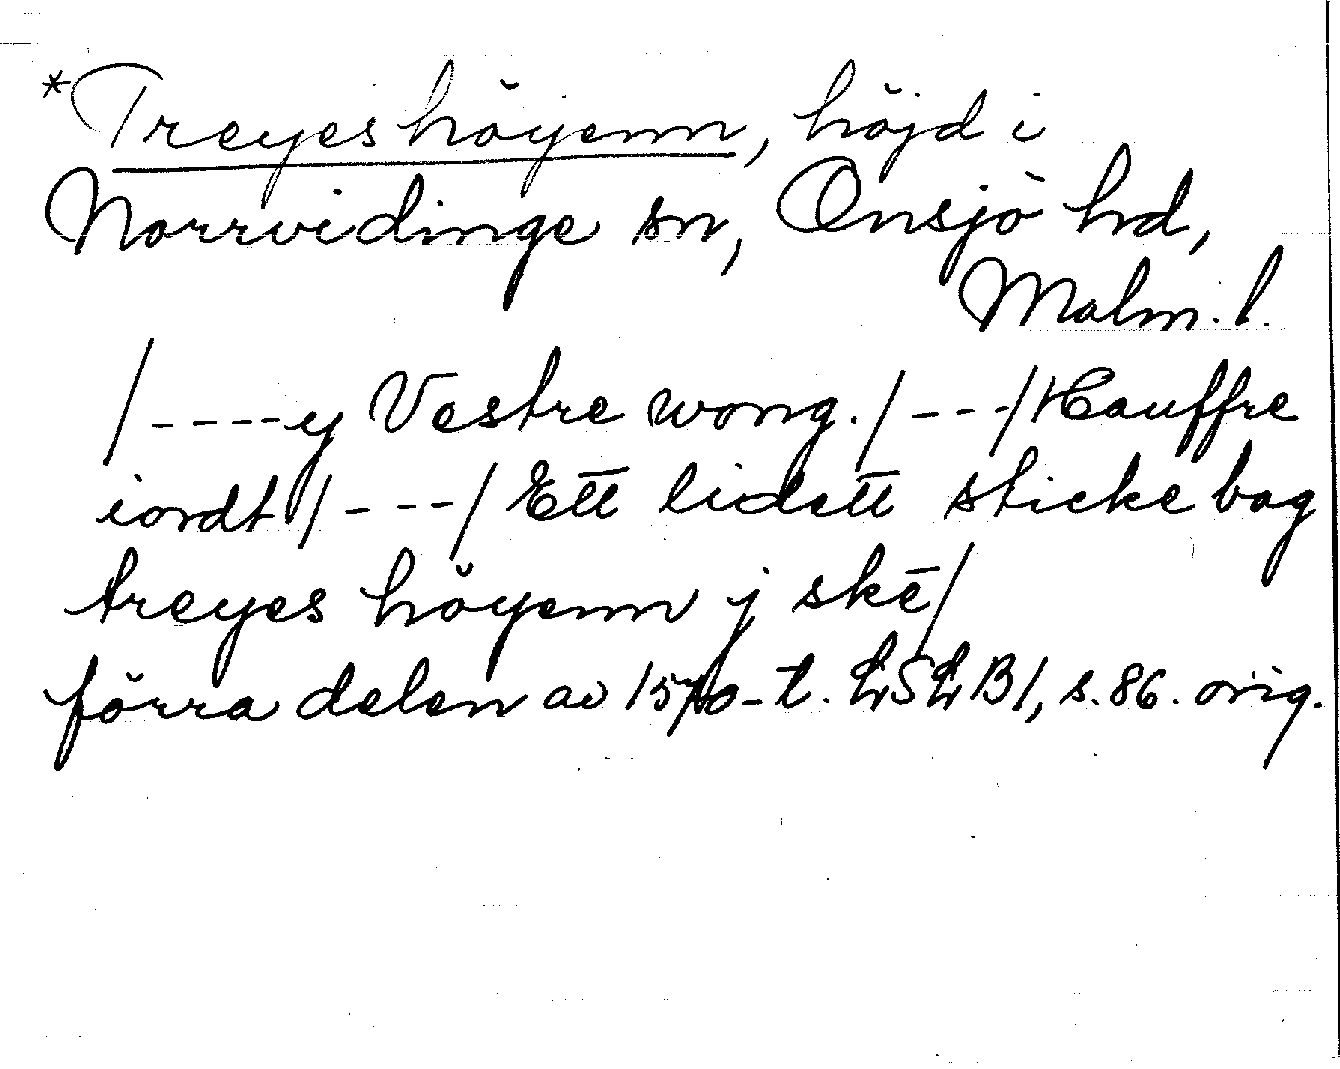 *Treyeshöyenn, höjd i
Norrvidinge sn, Onsjö hd,
Malm. l.
/----y Vestre wong./---/Hauffre
iordt/---/Ett lidett sticke bag
treyes höyenn j skē/
förra delen av 1570-t. LSLB1, s. 86. orig.